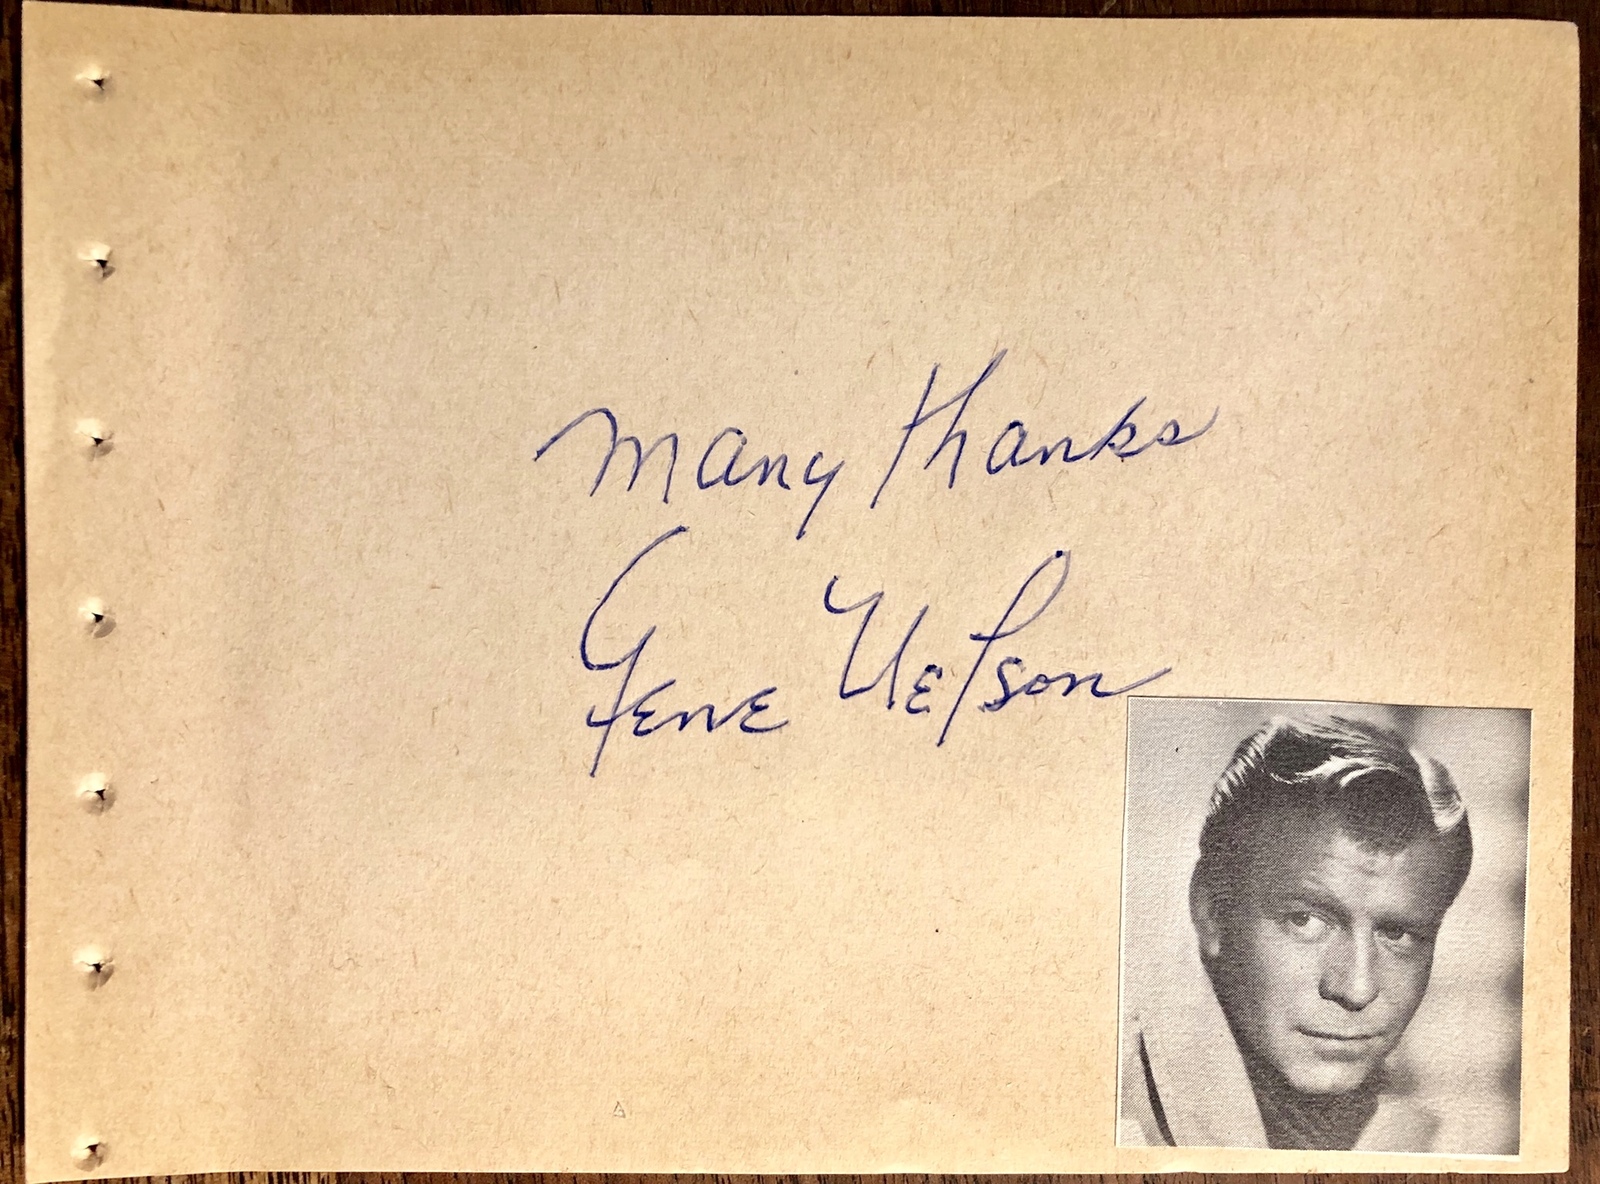 Many thanks
Gene Nelson